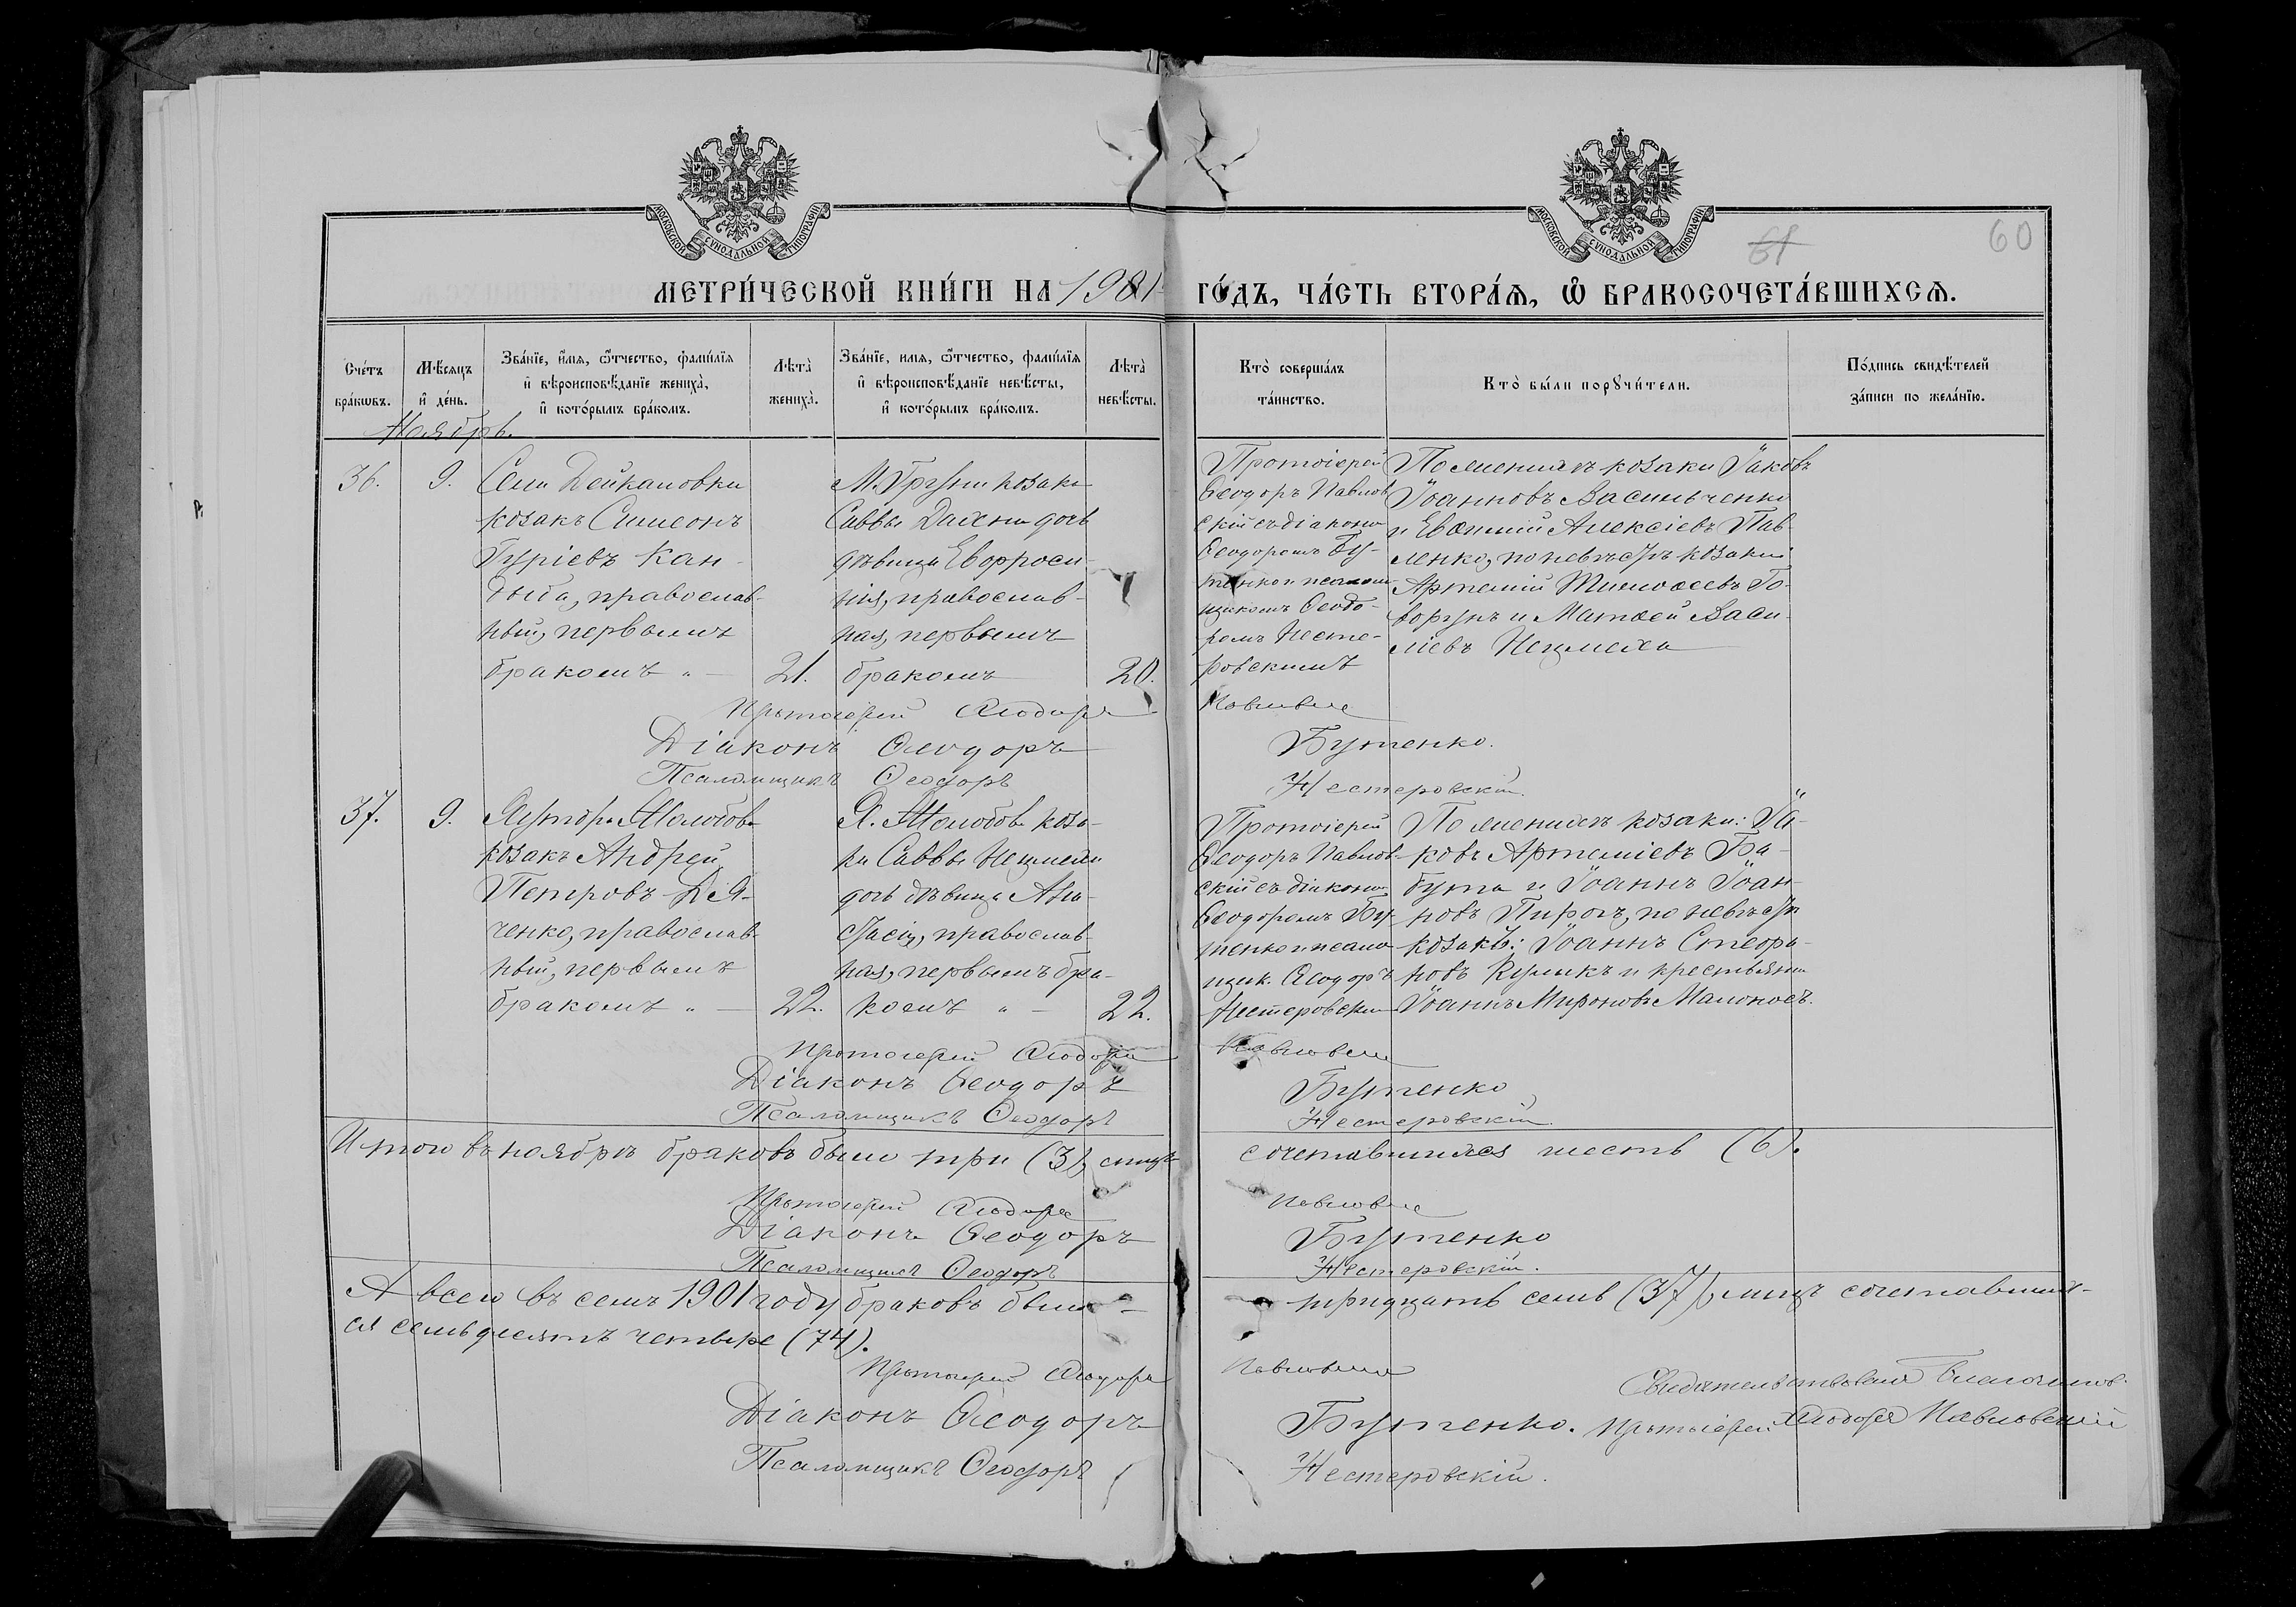 МОСКОВСКОЙ СУНОДАЛЬНОЙ ТИПОГРАФІИ
МОСКОВСКОЙ СУНОДАЛЬНОЙ ТИПОГРАФІИ
61
60
МЕТРИ́ЧЕСКОЙ КНИ́ГИ НА 1901 ГО́ДЪ, ЧА́СТЬ ВТОРА́Я, Ѽ БРАКОСОЧЕТА́ВШИХСЯ.
Сче́тъ бра́кѡвъ.
Мѣ́сяцъ и҆ де́нь.
Зва́нїе, и҆́мя, ѻ҆́тчество, фами́лїя
и҆ вѣроисповѣ́данїе жениха̀,
и҆ кото́рымъ бра́комъ.
Лѣта̀ жениха̀.
Зва́нїе, имя, ѻ҆́тчество, фами́лїя
и҆ вѣроисповѣ́данїе невѣ́сты,
и҆ кото́рымъ бра́комъ.
Лѣта̀ невѣ́сты.
Кто̀ соверша́лъ
та́инство.
Кто̀ бы́ли порꙋчи́тели.
По́дпись свидѣ́телей
за́писи по жела́нїю.
Ноябрь.
36.
9.
Села Дейкаловки
козакъ Симеонъ
Гуріевъ Кан-
дыба, православ-
ный, первымъ
бракомъ " —
21.
М. Груни козака
Саввы Дахна дочь
дѣвица Евфроси-
нія, православ-
ная, первымъ
бракомъ
20.
Протоіерей
Ѳеодоръ Павлов
скій съ діакономъ
Ѳеодоромъ Бу-
тенко и псалом
щикомъ Ѳеодо-
ромъ Несте-
ровскимъ
По женихѣ козаки Іаковъ
Іоанновъ Васильченко
и Евѳимій Алексіевъ Пав-
ленко, по невѣстѣ козаки
Артемій Тимоѳеевъ Го-
ворунъ и Матѳей Васи-
ліевъ
Протоіерей Ѳеодоръ Павловскій
Діаконъ Ѳеодоръ Бутенко.
Псаломщикъ Ѳеодоръ Нестеровскій.
37.
9.
козакъ Андрей
Петровъ Дя-
ченко, православ-
ный, первымъ
бракомъ " —
22.
коза-
ка Саввы
дочь дѣвица Ана-
стасія, православ-
ная, первымъ бра-
комъ " —
22.
Протоіерей
Ѳеодоръ Павлов-
скій съ діакономъ
Ѳеодоромъ Бу-
тенко и псалом
щик. Ѳеодоръ
Нестеровскимъ
По женихѣ козаки: Іа-
ковъ Артеміевъ Ба-
бута и Іоаннъ Іоан-
новъ Пирогъ, по невѣстѣ
козакъ: Іоаннъ Стефа-
новъ Куликъ и крестьянинъ
Іоаннъ Мироновъ Малоносъ.
Протоіерей Ѳеодоръ Павловскій
Діаконъ Ѳеодоръ Бутенко
Псаломщикъ Ѳеодоръ Нестеровскій.
Итого въ ноябрѣ браковъ было три (3), лицъ сочетавшихся шесть (6).
Протоіерей Ѳеодоръ Павловскій
Діаконъ Ѳеодоръ Бутенко
Псаломщикъ Ѳеодоръ Нестеровскій.
А всего въ семъ 1901 году браковъ было — тридцать семь (37), лицъ сочетавших-
ся семьдесятъ четыре (74).
Протоіерей Ѳеодоръ Павловскій
Діаконъ Ѳеодоръ Бутенко.
Псаломщикъ Ѳеодоръ Нестеровскій.
Свидѣтельствовалъ Благочинный
Протоіерей Ѳеодоръ Павловскій